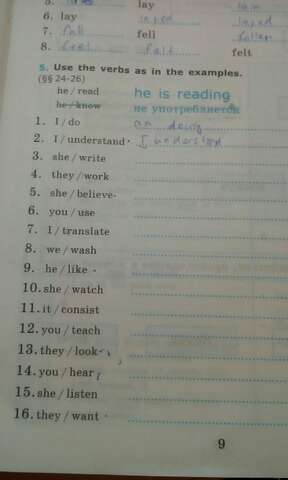 5. lay
6. lay layed layed
7. fall fell fallen
8. feel felt felt
5. Use the verbs as in the examples.
(§§ 24-26)
he / read he is reading
he / know не употребляется
1. I / do am doing
2. I / understand · I understand
3. she / write
4. they / work
5. she / believe -
6. you / use
7. I / translate
8. we / wash
9. he / like -
10. she / watch
11. it / consist
12. you / teach
13. they / look
14. you / hear
15. she / listen
16. they / want -
9